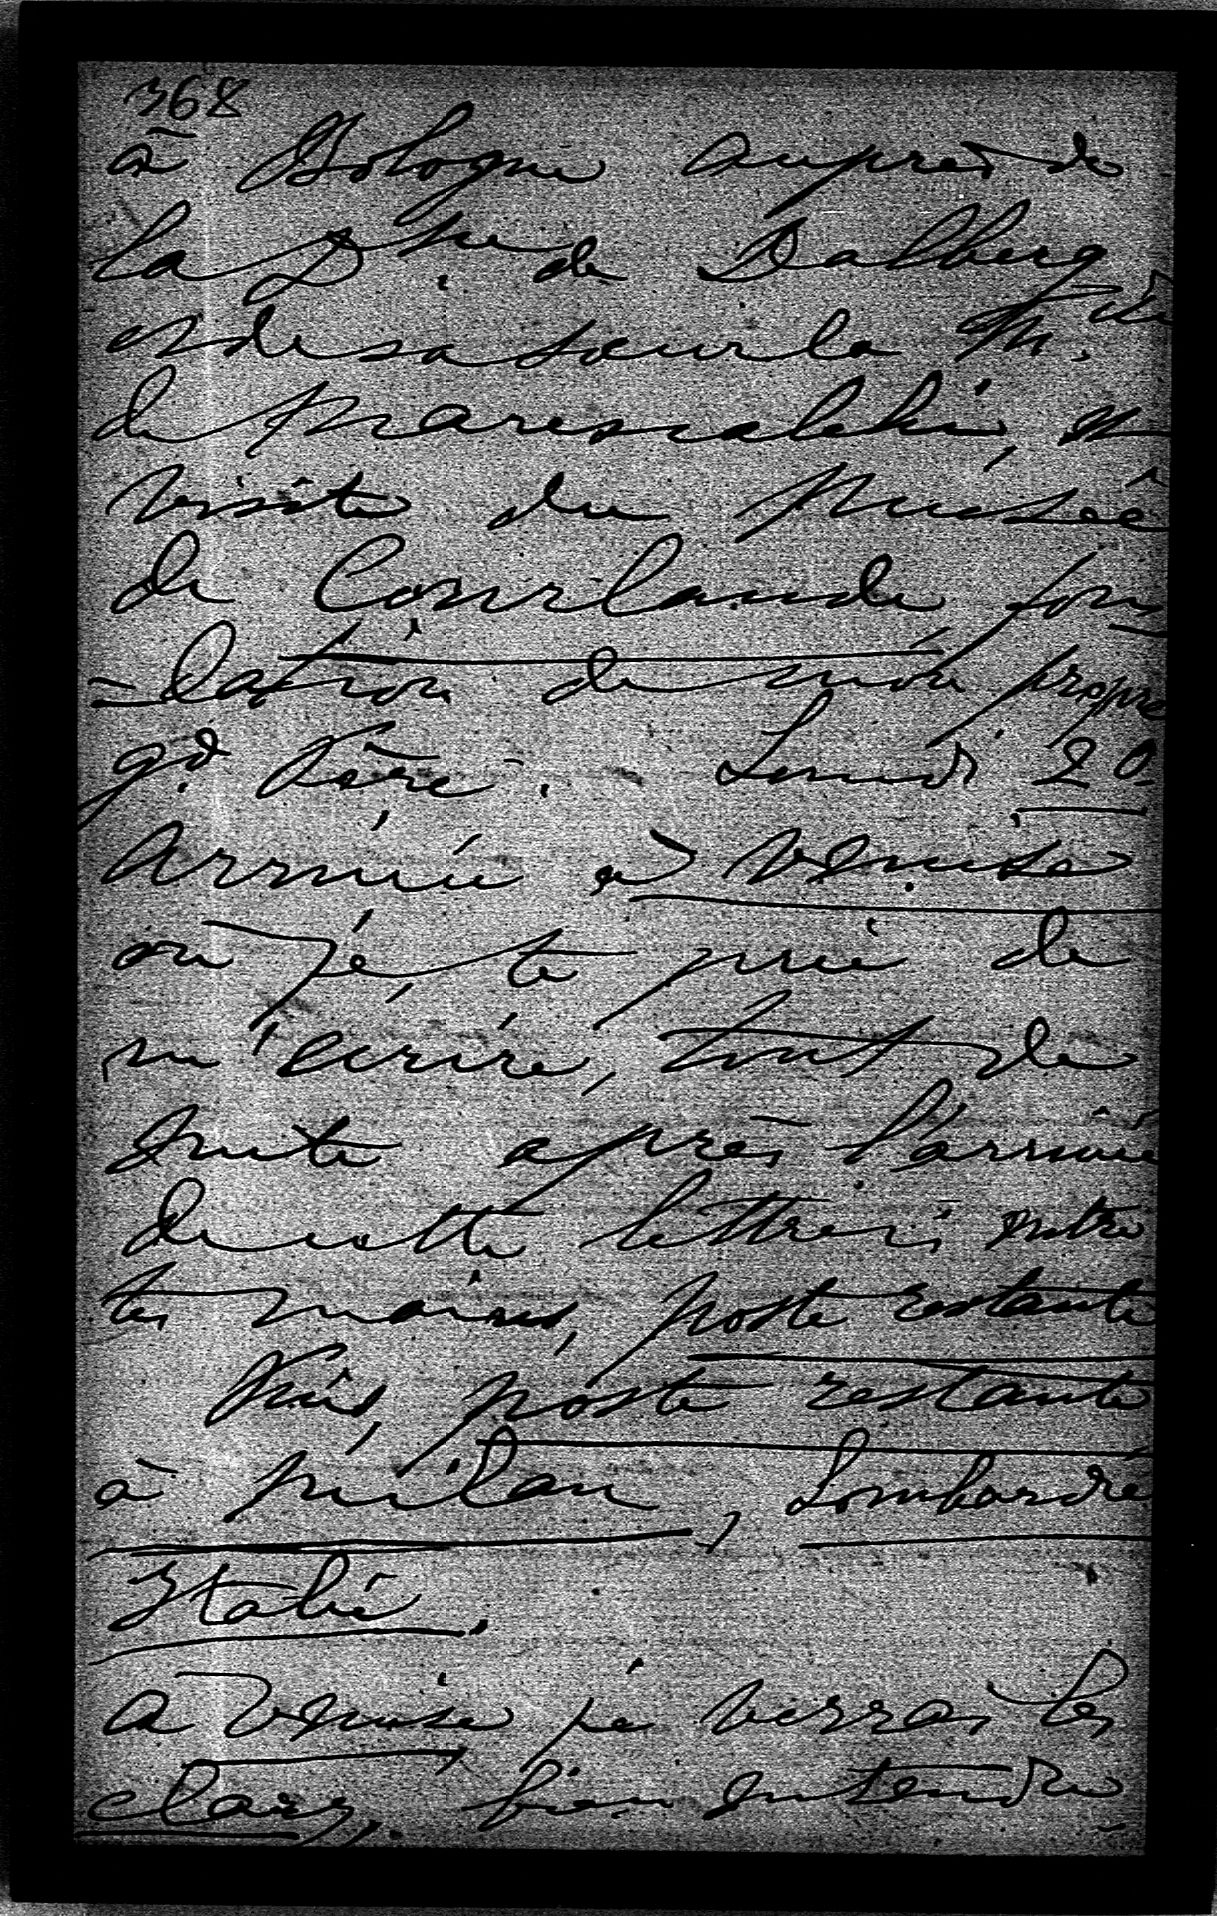 368
à Bologne auprès de
la Dsse de Dalberg
et de sa sœur la Mise
de Marescalchi, et
visite du Musée
de Courlande, fon
-dation de mon propre
gd Père. Lundi 20
arrivée à Venise
où je te prie de
m'écrire, tout de
suite après l'arrivée
de cette lettre, entre
tes mains, poste restante
Puis, poste restante
à Milan, Lombardie
Italie.
à Venise je verrai les
Clary, bien entendu